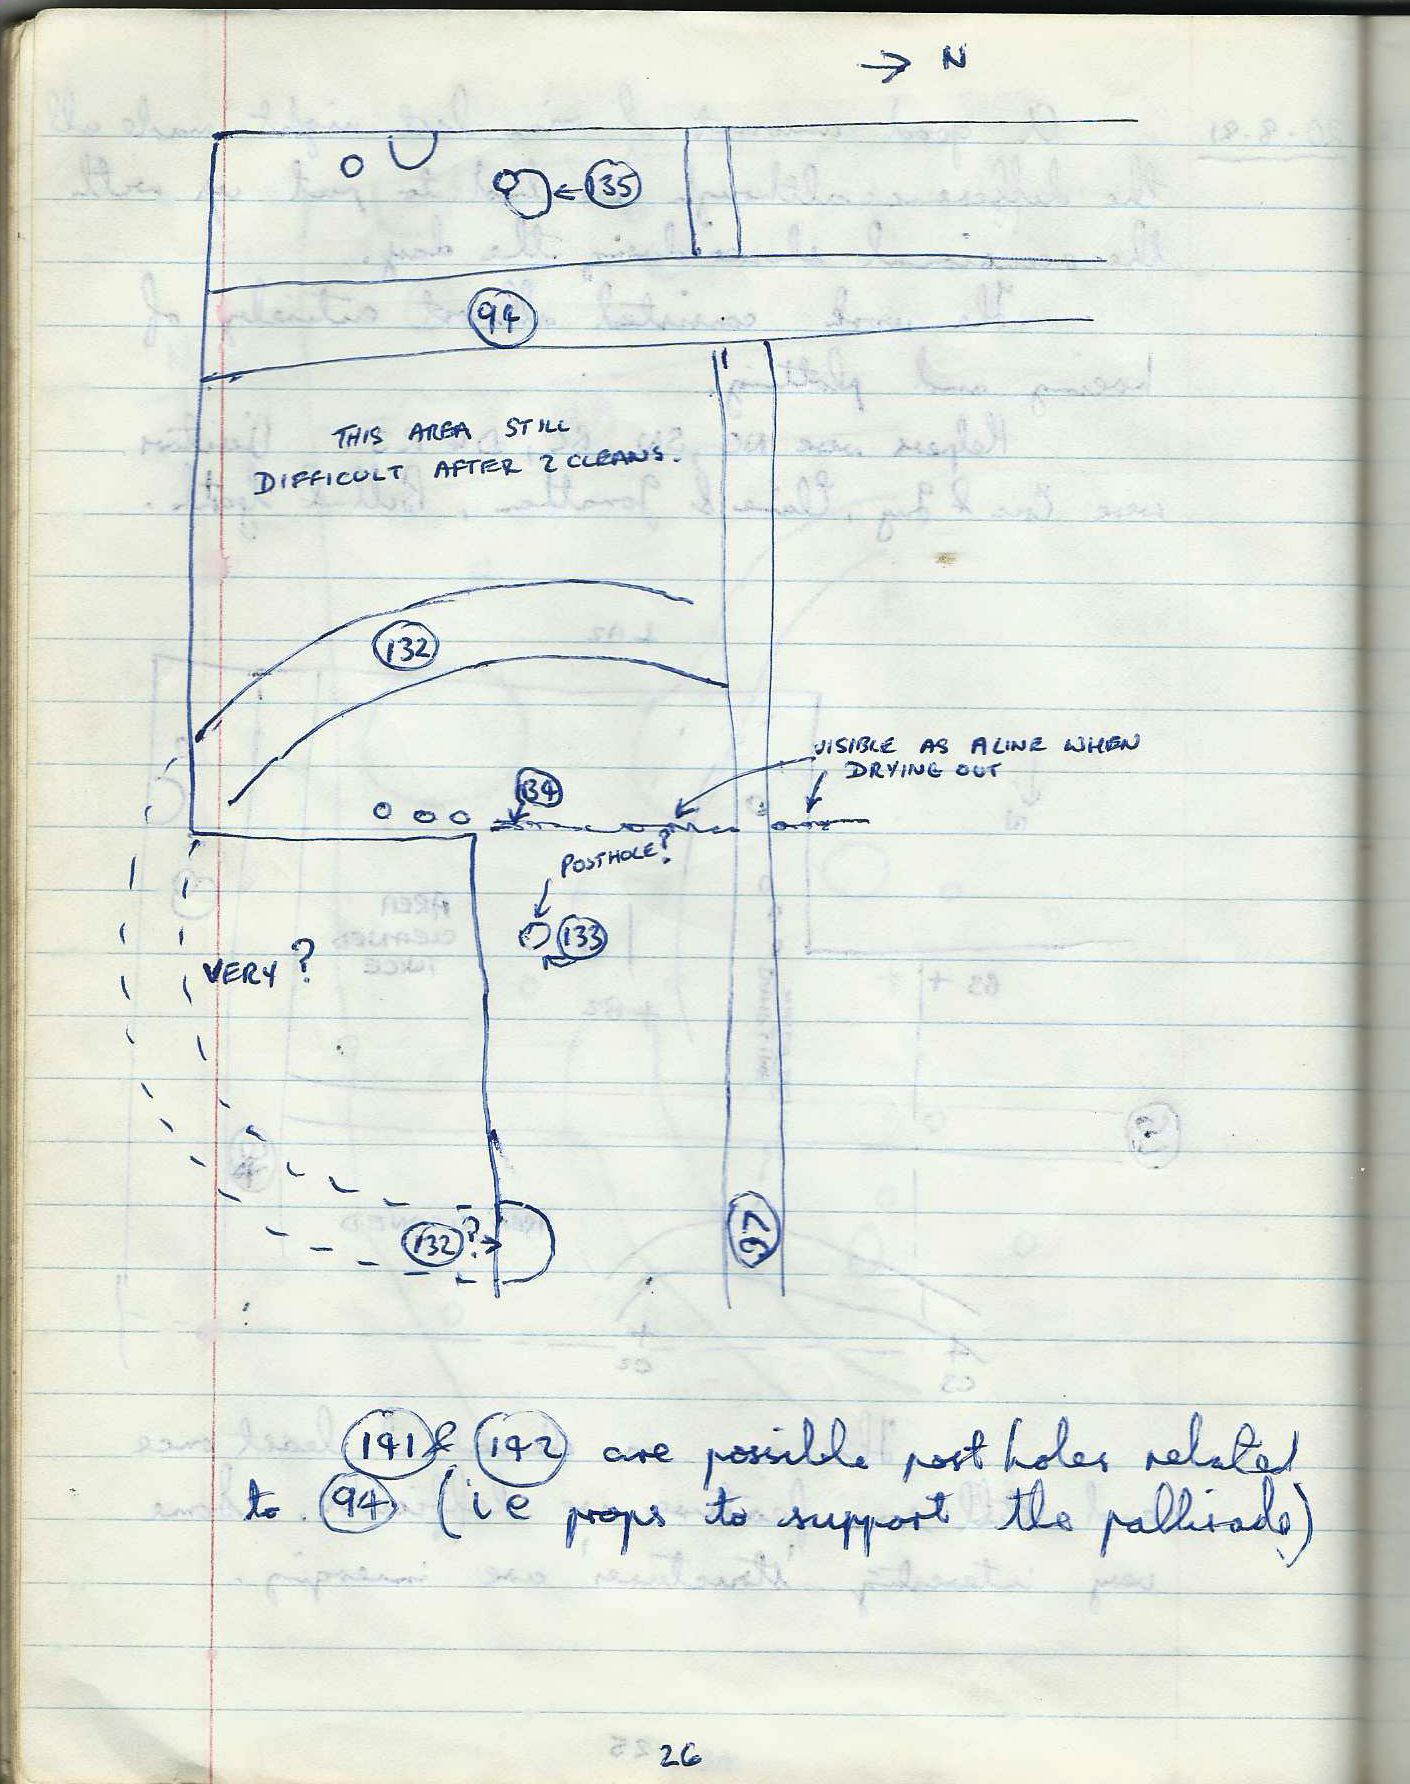 → N
135
94
THIS AREA STILL
DIFFICULT AFTER 2 CLEANS.
132
VISIBLE AS A LINE WHEN
DRYING OUT
134
POSTHOLE?
133
VERY ?
132 ?
97
141 & 142 are possible post holes related
to 94 (ie props to support the pallisade)
26